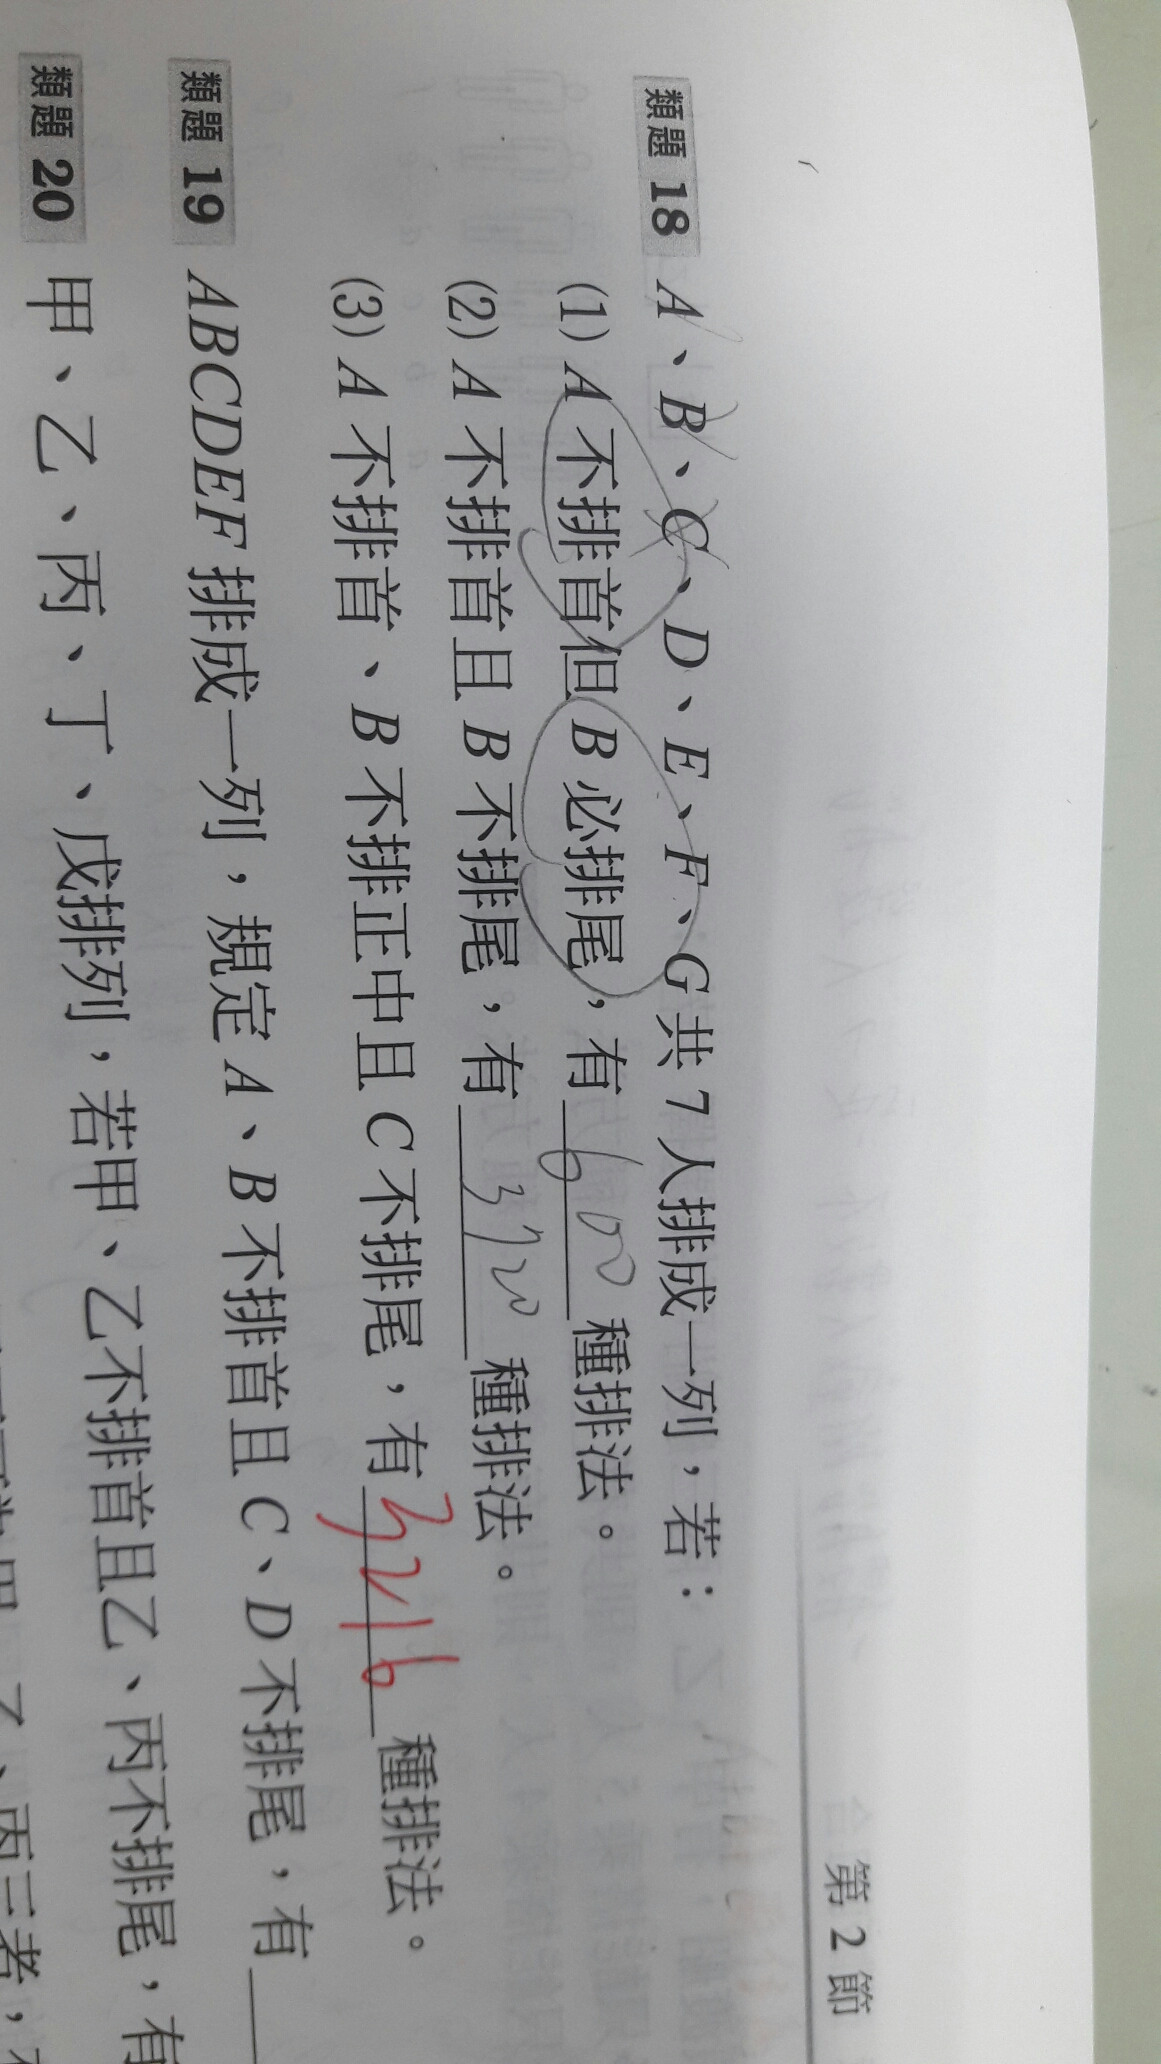 第2節
類題 18 A、B、C、D、E、F、G共7人排成一列，若：
(1) A不排首但B必排尾，有600種排法。
(2) A不排首且B不排尾，有3720種排法。
(3) A不排首、B不排正中且C不排尾，有3216種排法。
類題 19 ABCDEF排成一列，規定A、B不排首且C、D不排尾，有
類題 20 甲、乙、丙、丁、戊排列，若甲、乙不排首且乙、丙不排尾，有